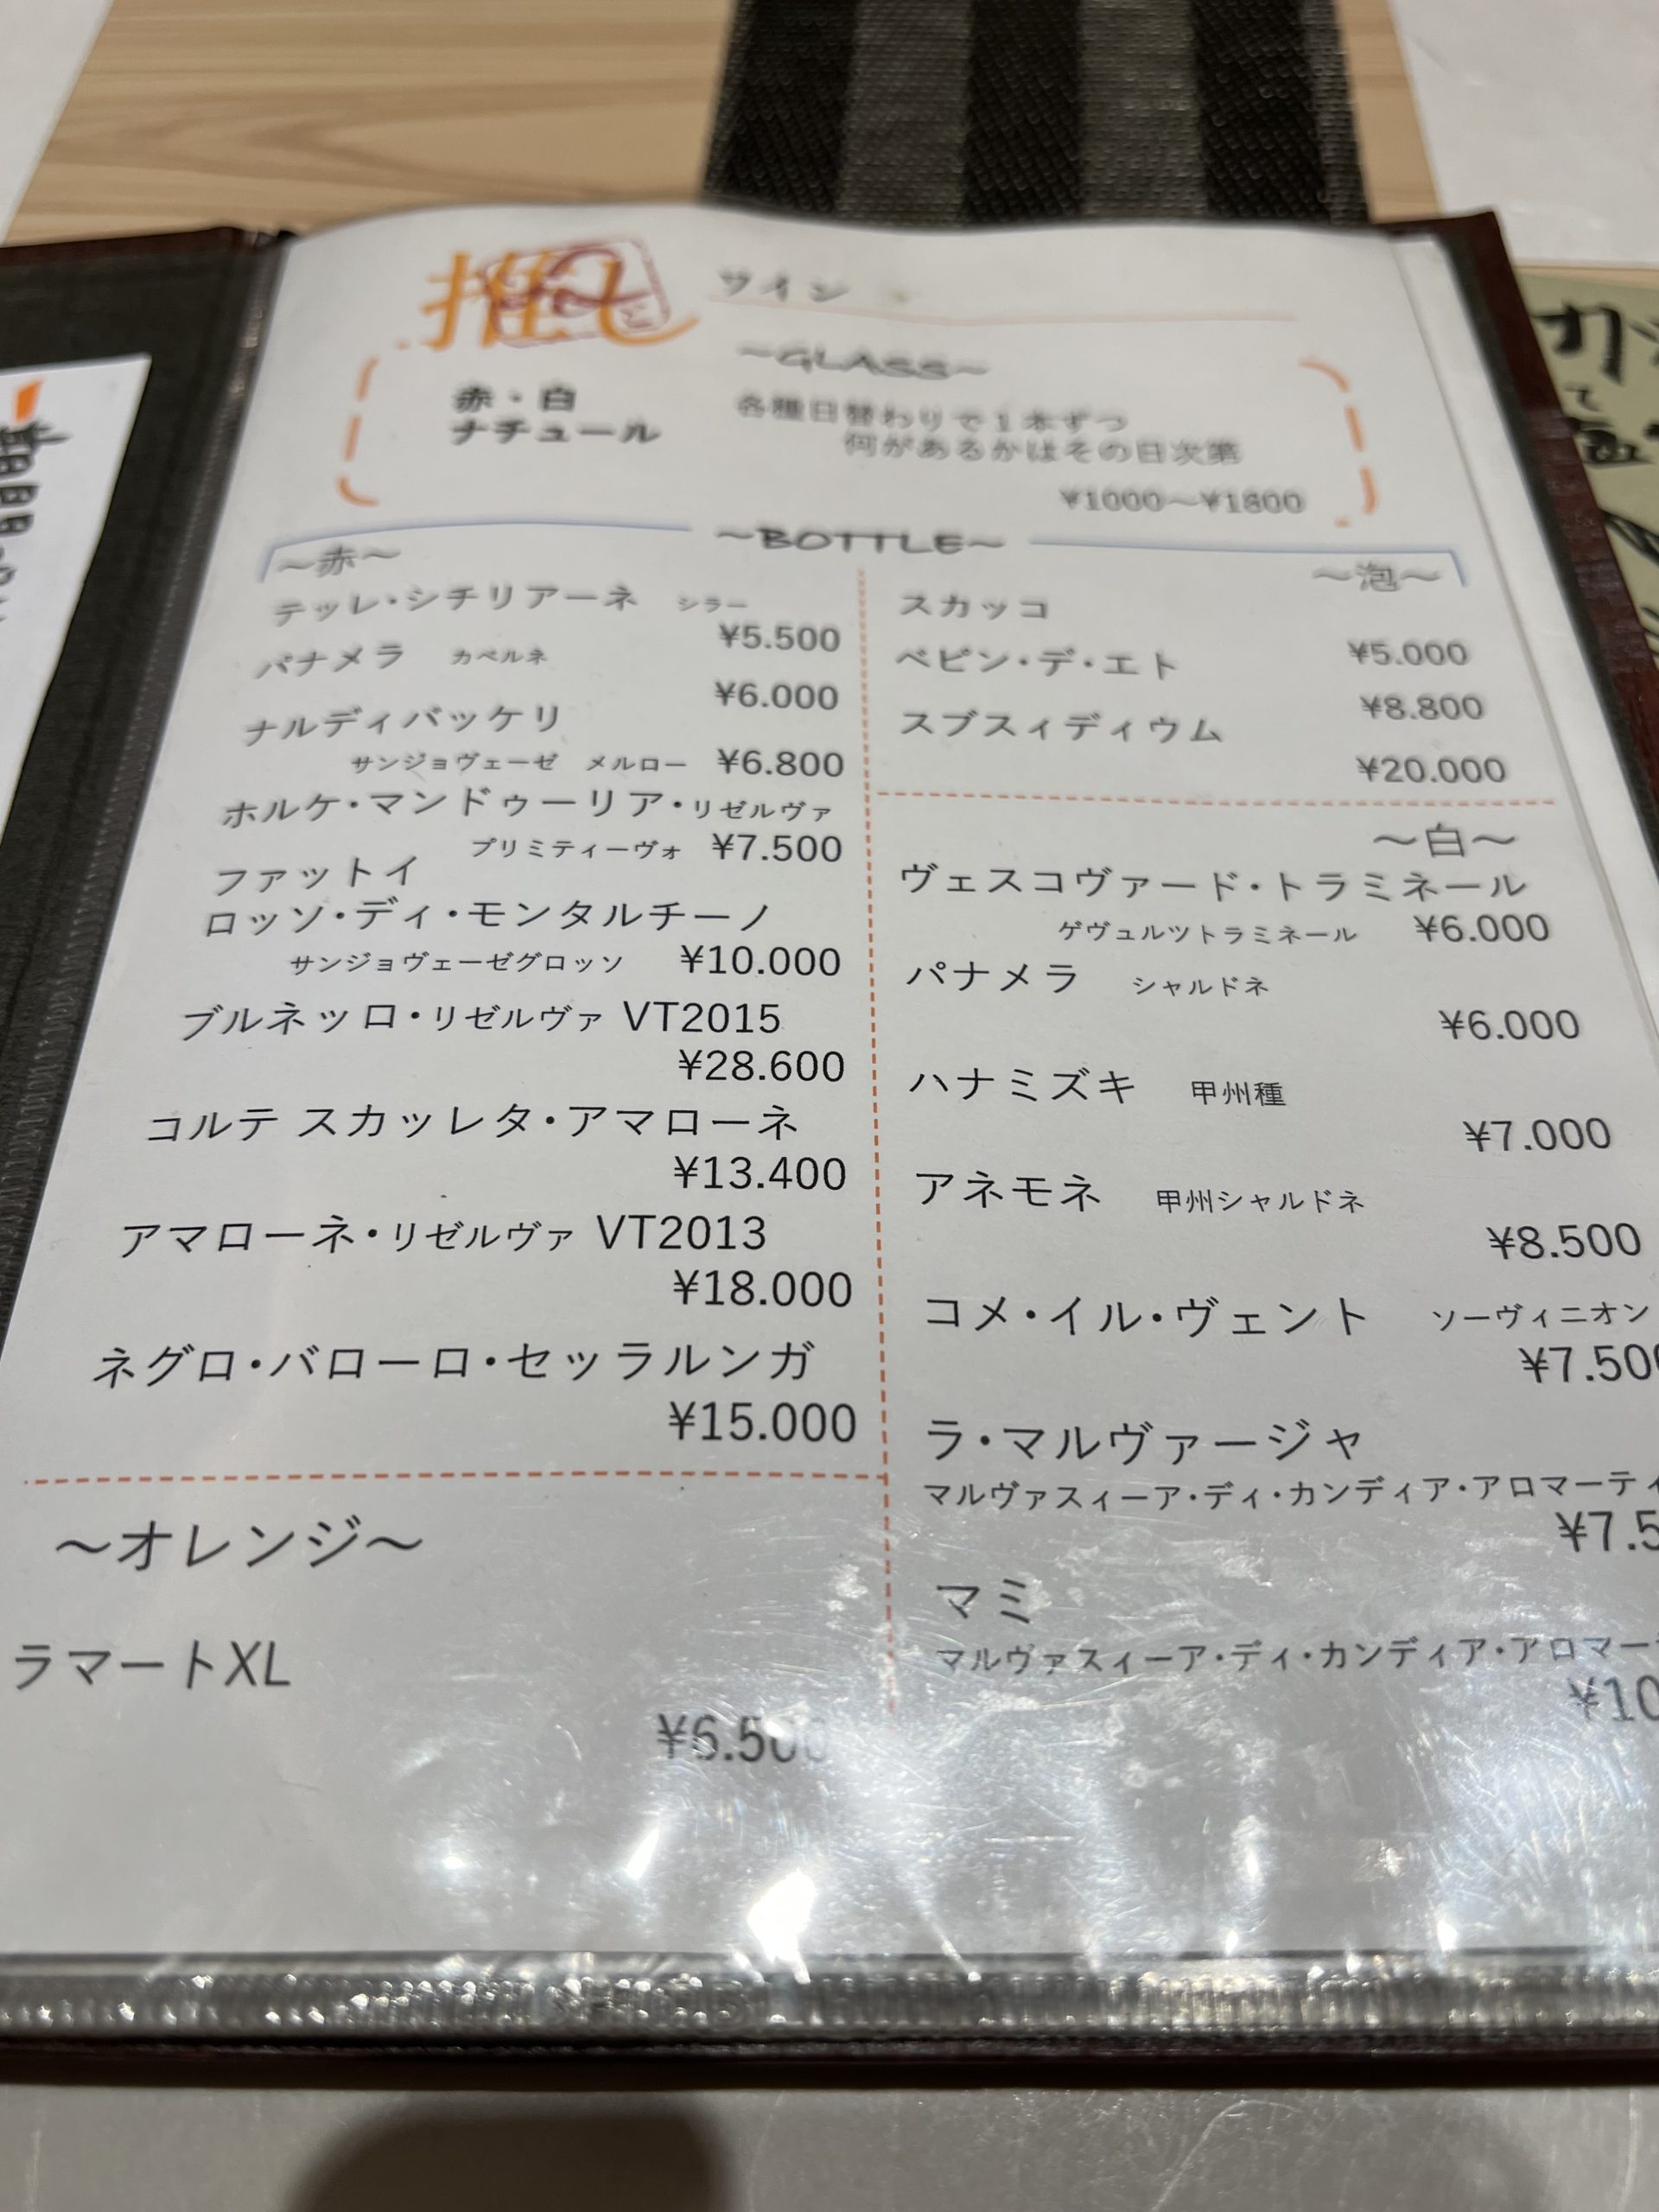 推し
ワイン
～GLASS～
赤・白
ナチュール
各種日替わりで1本ずつ
何があるかはその日次第
¥1000～¥1800
～BOTTLE～
～赤～
テッレ・シチリアーネ シラー
¥5.500
パナメラ カベルネ
¥6.000
ナルディバッケリ
サンジョヴェーゼ メルロー ¥6.800
ホルケ・マンドゥーリア・リゼルヴァ
プリミティーヴォ ¥7.500
ファットイ
ロッソ・ディ・モンタルチーノ
サンジョヴェーゼグロッソ ¥10.000
ブルネッロ・リゼルヴァ VT2015
¥28.600
コルテ スカッレタ・アマローネ
¥13.400
アマローネ・リゼルヴァ VT2013
¥18.000
ネグロ・バローロ・セッラルンガ
¥15.000
～オレンジ～
ラマートXL
¥6.500
～泡～
スカッコ
¥5.000
ペピン・デ・エト
¥8.800
スブスィディウム
¥20.000
～白～
ヴェスコヴァード・トラミネール
ゲヴュルツトラミネール ¥6.000
パナメラ シャルドネ
¥6.000
ハナミズキ 甲州種
¥7.000
アネモネ 甲州シャルドネ
¥8.500
コメ・イル・ヴェント ソーヴィニオン
¥7.500
ラ・マルヴァージャ
マルヴァスィーア・ディ・カンディア・アロマーティ
¥7.5
マミ
マルヴァスィーア・ディ・カンディア・アロマー
¥10